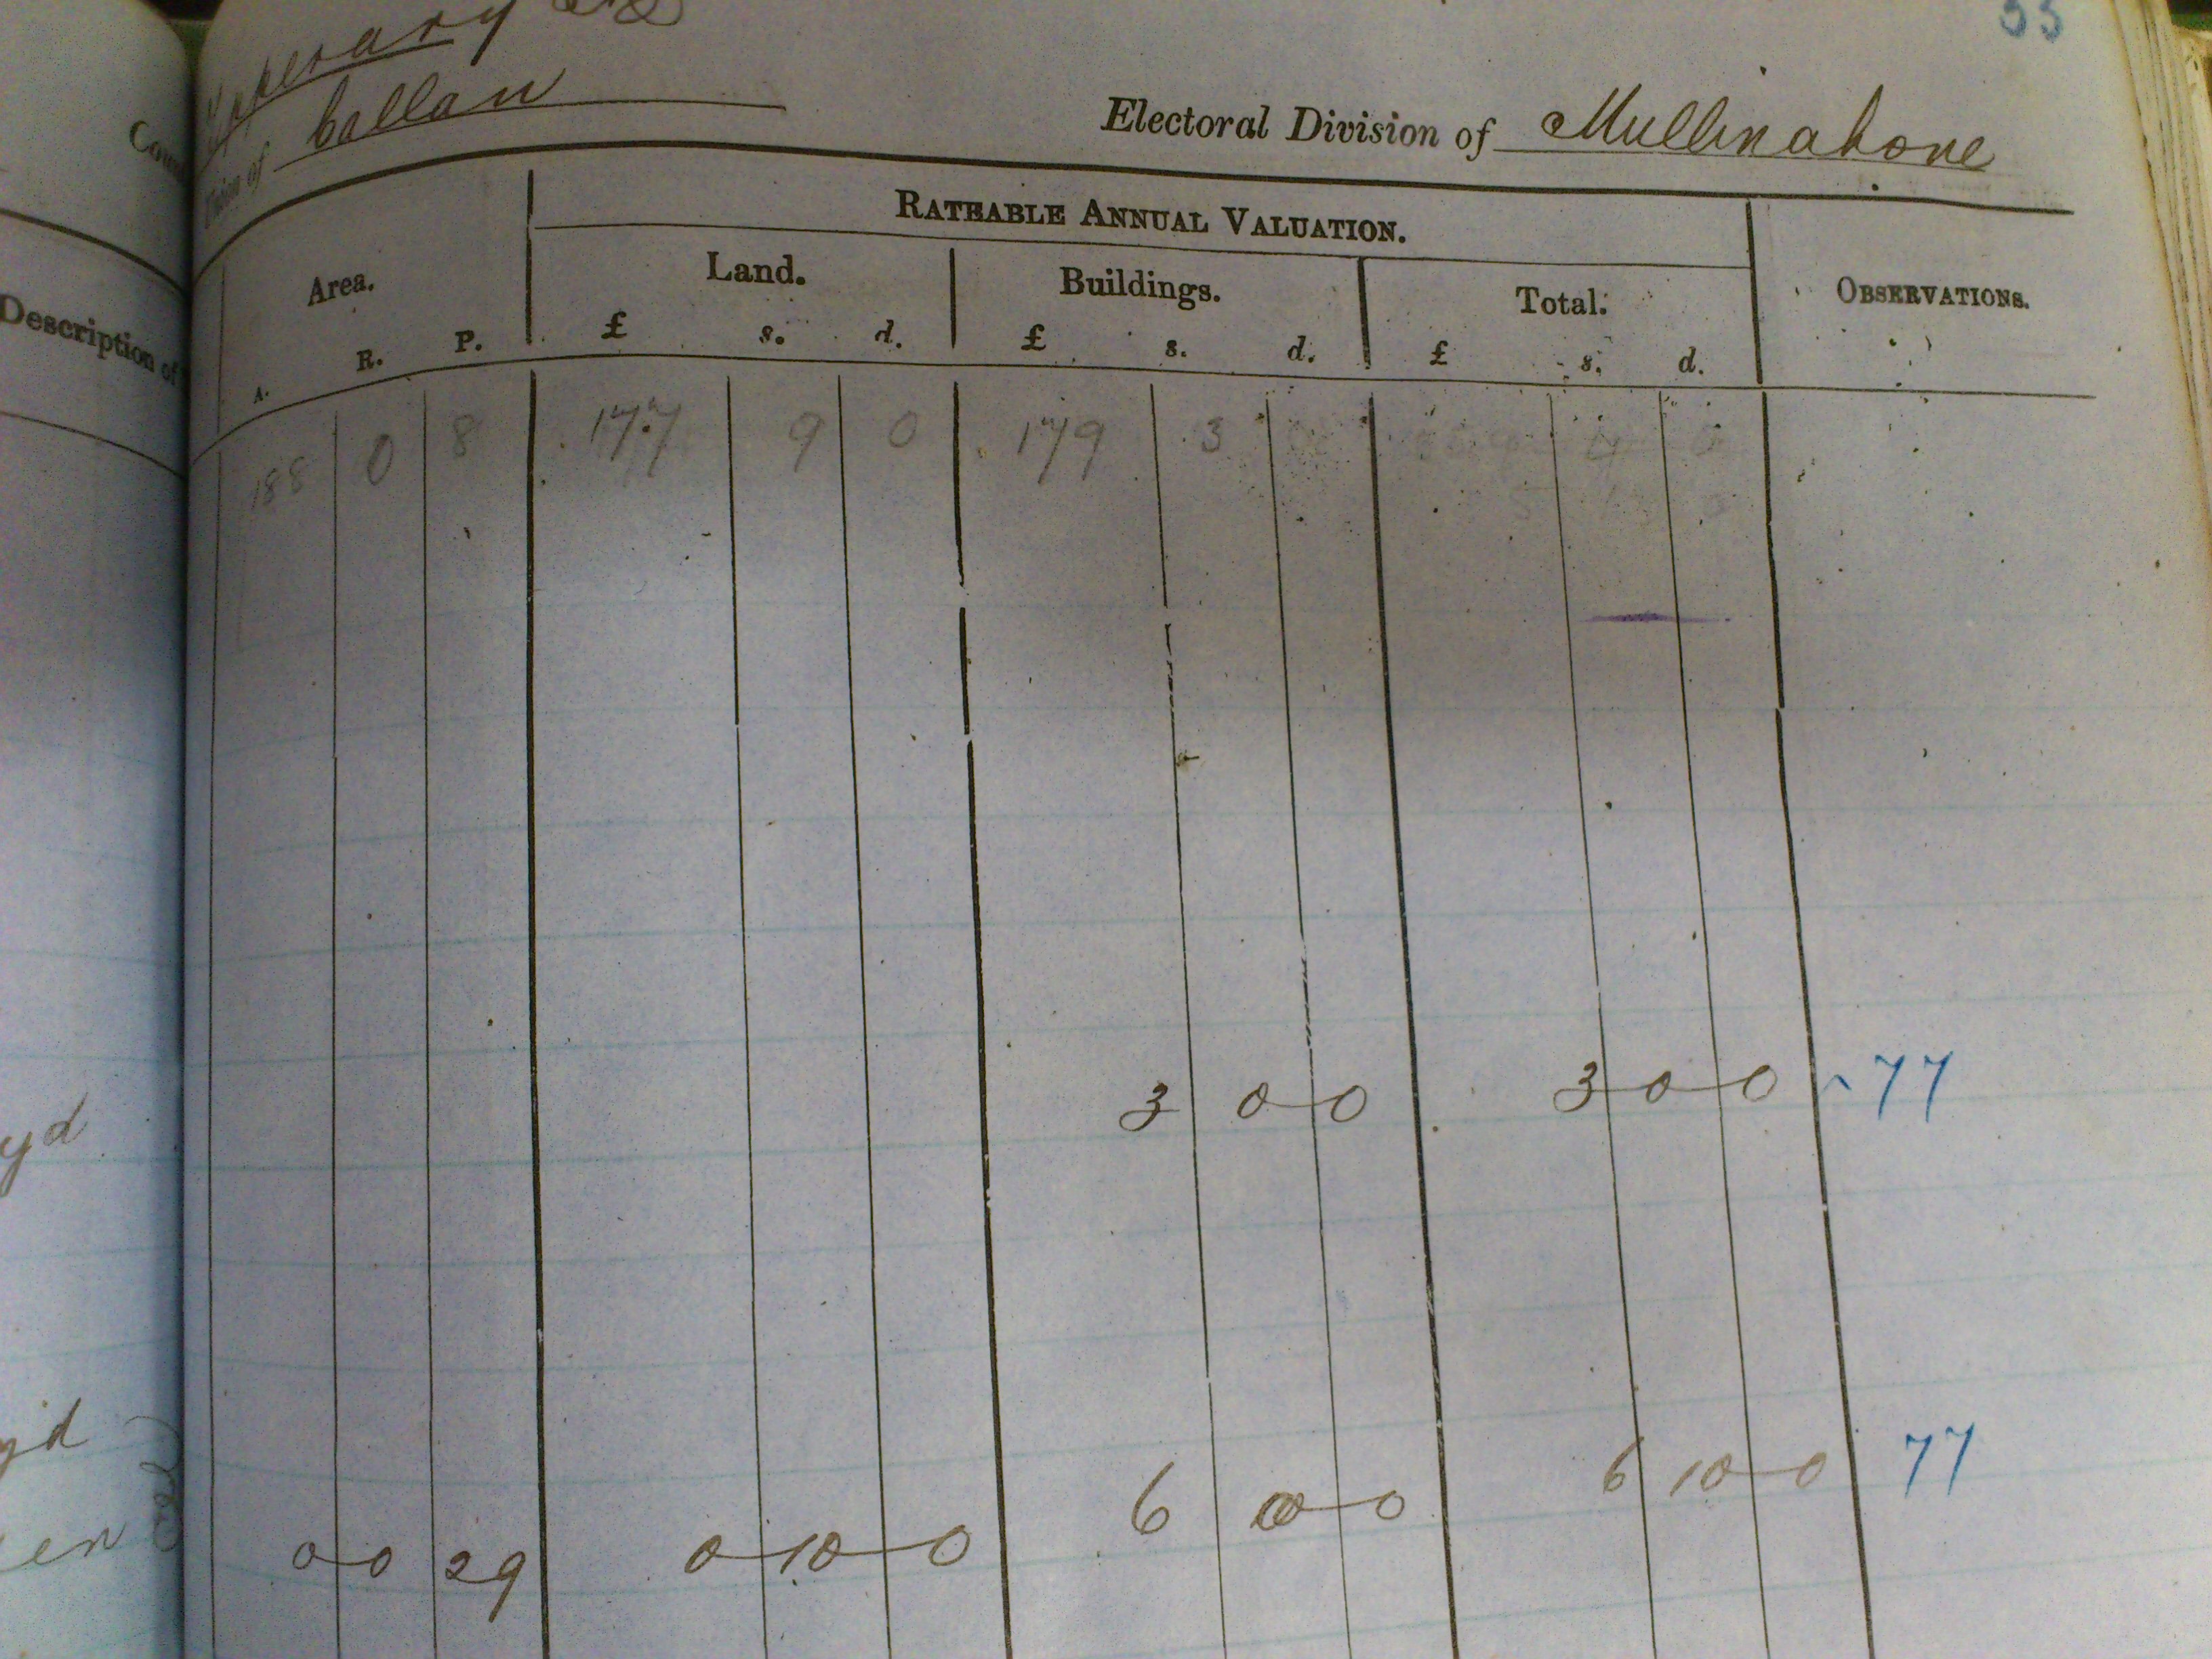 Tipperary S R
33
Coun
Union of Callan
Electoral Division of Mullinahone
RATEABLE ANNUAL VALUATION.
Description of
Area. Land. Buildings. Total. OBSERVATIONS.
A. R. P. £ s. d. £ s. d. £ s. d.
188 0 8 177 9 0 179 3
yd
3 0 0 3 0 0 77
yd
en
0 0 29 0 10 0 6 0 0 6 10 0 77